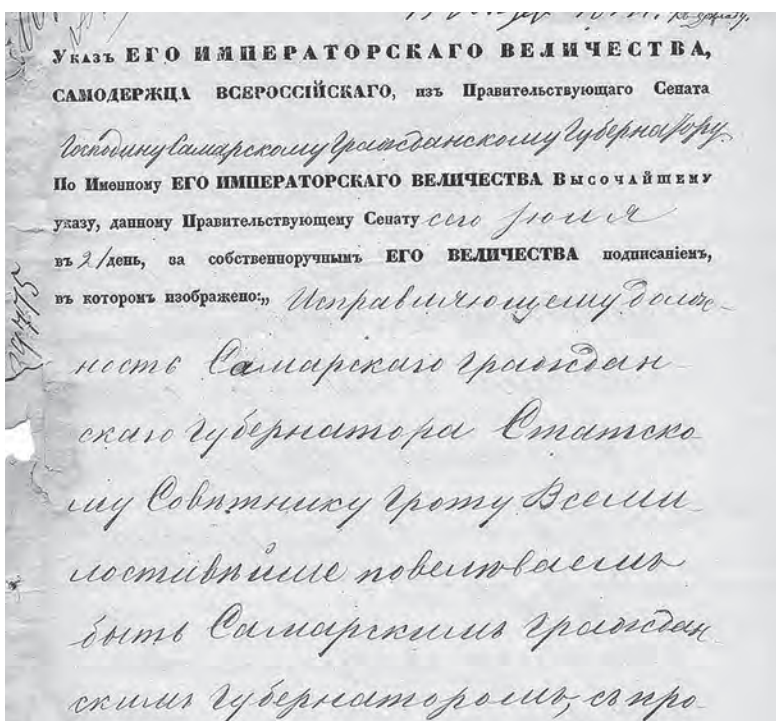 Указъ ЕГО ИМПЕРАТОРСКАГО ВЕЛИЧЕСТВА,
САМОДЕРЖЦА ВСЕРОССІЙСКАГО, изъ Правительствующаго Сената
Господину Самарскому Гражданскому Губернатору.
По Именному ЕГО ИМПЕРАТОРСКАГО ВЕЛИЧЕСТВА Высочайшему
указу, данному Правительствующему Сенату сего Іюля
въ 21 день, за собственноручнымъ ЕГО ВЕЛИЧЕСТВА подписаніемъ,
въ которомъ изображено:„ Исправляющему долж-
ность Самарскаго граждан
скаго губернатора Статско
му Совѣтнику Гроту Всеми
лостивѣйше повелѣваемъ
быть Самарскимъ граждан
скимъ губернаторомъ, съ про-
29775